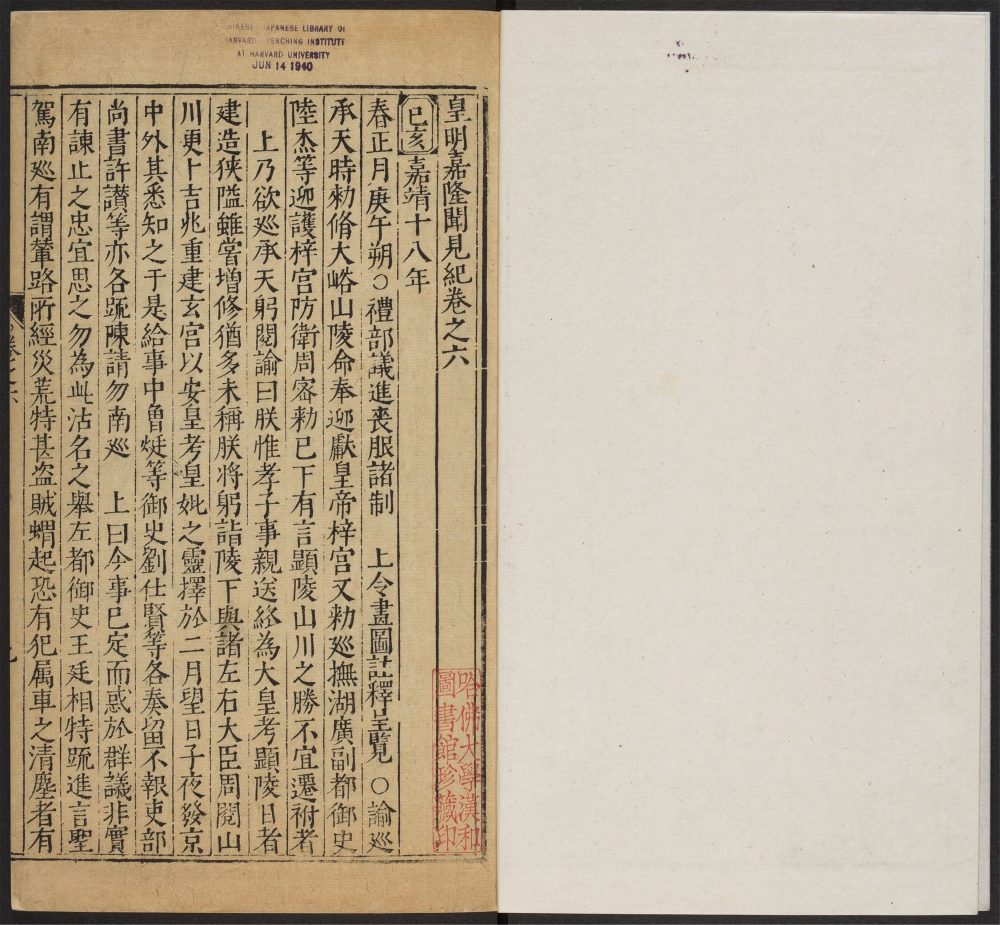 CHINESE - JAPANESE LIBRARY OF
HARVARD - YENCHING INSTITUTE
AT HARVARD UNIVERSITY
JUN 14 1940
皇明嘉隆聞見紀卷之六
己亥 嘉靖十八年
春正月庚午朔○禮部議進喪服諸制 上令畫圖註釋呈覽○諭廵
承天時勑脩大峪山陵命奉迎獻皇帝梓宮又勑廵撫湖廣副都御史
陸杰等迎護梓宮防衛周密勑已下有言顯陵山川之勝不宜遷祔者
上乃欲廵承天躬閱諭曰朕惟孝子事親送終為大皇考顯陵日者
建造狹隘雖嘗增修猶多未稱朕將躬詣陵下與諸左右大臣周閱山
川更卜吉兆重建玄宮以安皇考皇妣之靈擇於二月望日子夜發京
中外其悉知之于是給事中曾烶等御史劉仕賢等各奏留不報吏部
尚書許讃等亦各䟽陳請勿南廵 上曰今事已定而惑於群議非實
有諫止之忠宜思之勿為此沽名之舉左都御史王廷相特䟽進言聖
駕南廵有謂輦路所經災荒特甚盗賊蝟起恐有犯属車之清塵者有
卷之六
哈佛大學漢和
圖書館珍藏印